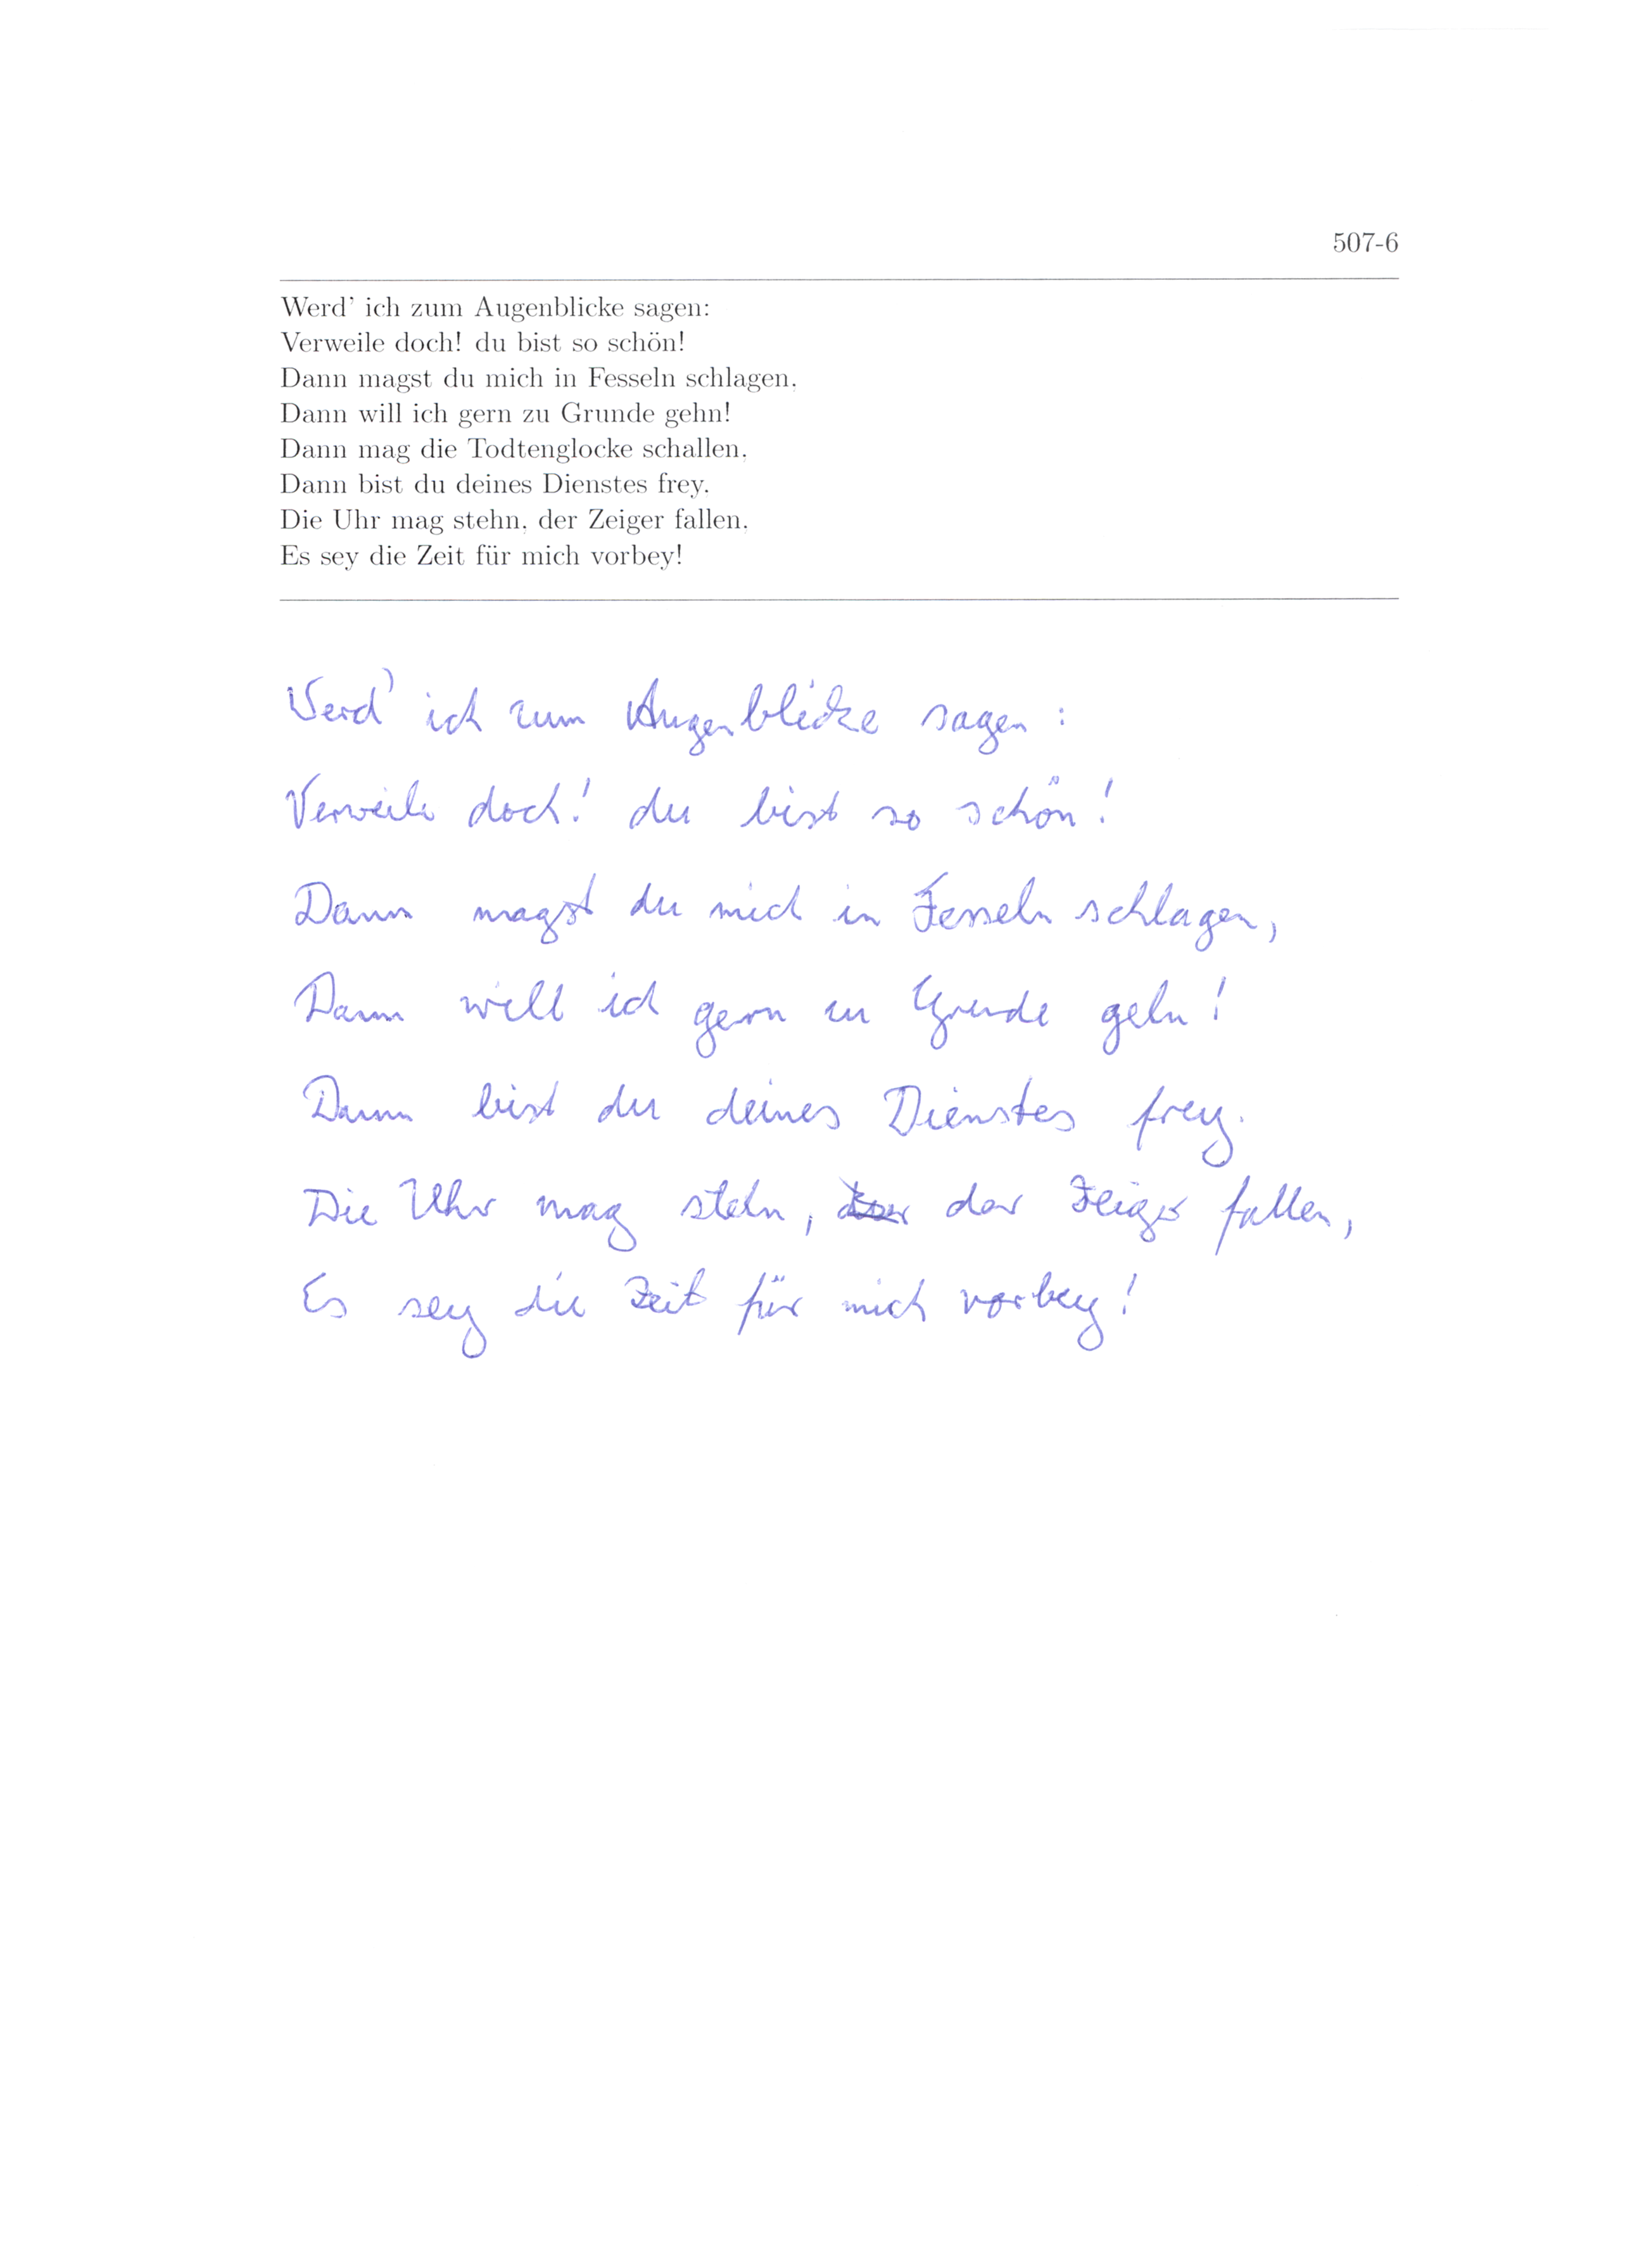 507-6
Werd' ich zum Augenblicke sagen:
Verweile doch! du bist so schön!
Dann magst du mich in Fesseln schlagen,
Dann will ich gern zu Grunde gehn!
Dann mag die Todtenglocke schallen,
Dann bist du deines Dienstes frey,
Die Uhr mag stehn, der Zeiger fallen,
Es sey die Zeit für mich vorbey!
Werd' ich zum Augenblicke sagen:
Verweile doch! du bist so schön!
Dann magst du mich in Fesseln schlagen,
Dann will ich gern zu Grunde gehn!
Dann bist du deines Dienstes frey.
Die Uhr mag stehn, der Zeiger fallen,
Es sey die Zeit für mich vorbey!